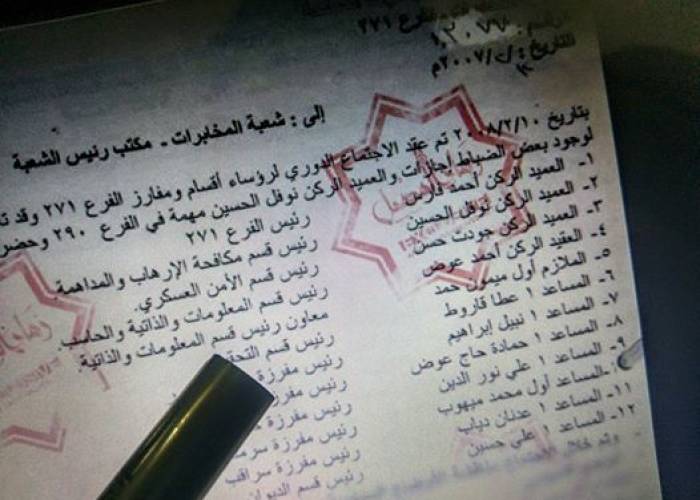 فرع ٢٧١
التاريخ: ك/٢٠٠٧م
إلى : شعبة المخابرات - مكتب رئيس الشعبة
بتاريخ ٢٠٠٨/٢/١٠ تم عقد الاجتماع الدوري لرؤساء أقسام ومفارز الفرع ٢٧١ وقد
لوجود بعض الضباط إجازات والعميد الركن نوفل الحسين مهمة في الفرع ٢٩٠ وحضر
١- العميد الركن أحمد فارس رئيس الفرع ٢٧١
٢- العميد الركن نوفل الحسين رئيس قسم مكافحة الإرهاب والمداهمة
٣- العميد الركن جودت حسن رئيس قسم الأمن العسكري.
٤- العقيد الركن أحمد عوض رئيس قسم المعلومات والذاتية والحاسب.
٥- الملازم أول ميمون حمد معاون رئيس قسم المعلومات والذاتية.
٦- المساعد ١ عطا قاروط رئيس قسم
٧- المساعد ١ نبيل إبراهيم رئيس مفرزة
٨- المساعد ١ حمادة حاج عوض رئيس مفرزة
٩- المساعد ١ علي نور الدين رئيس مفرزة
المساعد أول محمد ميهوب رئيس مفرزة
١١- المساعد ١ عدنان دياب رئيس مفرزة سراقب
١٢- المساعد ١ علي حسين رئيس قسم الديوان